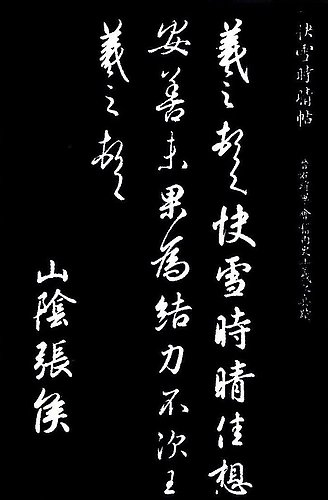 快雪時晴帖
羲之頓首快雪時晴佳想
安善未果為結力不次王
羲之頓首
山陰張侯